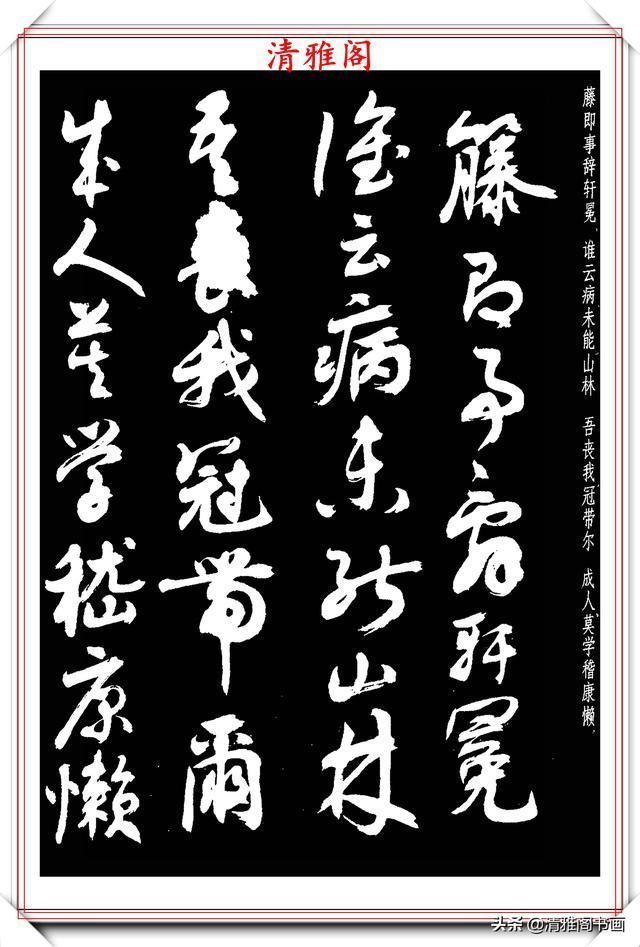 清雅阁
藤即事辞轩冕，谁云病未能山林 吾丧我冠带尔 成人莫学稽康懒，
籐即事辭軒冕
誰云病未能山林
吾喪我冠帶爾
成人莫学嵇康懶
头条 @清雅阁书画